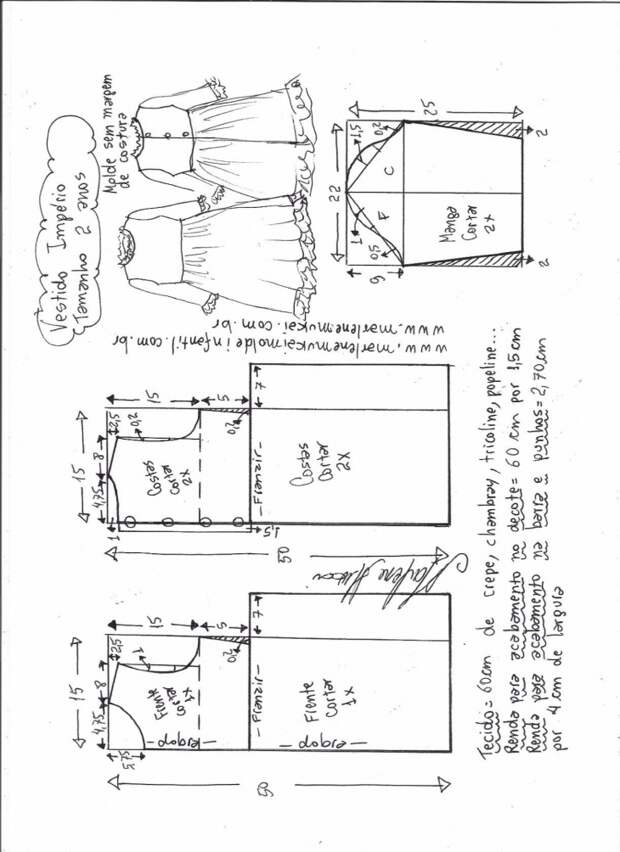 Vestido Império
Tamanho 2 anos
Molde sem margem
de costura
www.marlenemukai.com.br
www.marlenemukaimoldeinfantil.com.br
25
22
1,5
0,2
C
F
1
0,5
9
Manga
Cortar
2x
2
2
15
4,75
8
2,5
0,2
15
5
7
1
Costas
cortar
2x
0,2
1,5
-Franzir-
Costas
Cortar
2x
50
15
4,75
8
2,5
1
15
5
7
5,75
Frente
cortar
1x
0,2
-dobra-
-Franzir-
Frente
Cortar
1x
-dobra-
50
Tecido= 60cm de crepe, chambray, tricoline, popeline...
Renda para acabamento no decote= 60 cm por 1,5cm
Renda para acabamento na barra e punhos= 2,70cm
por 4 cm de largura